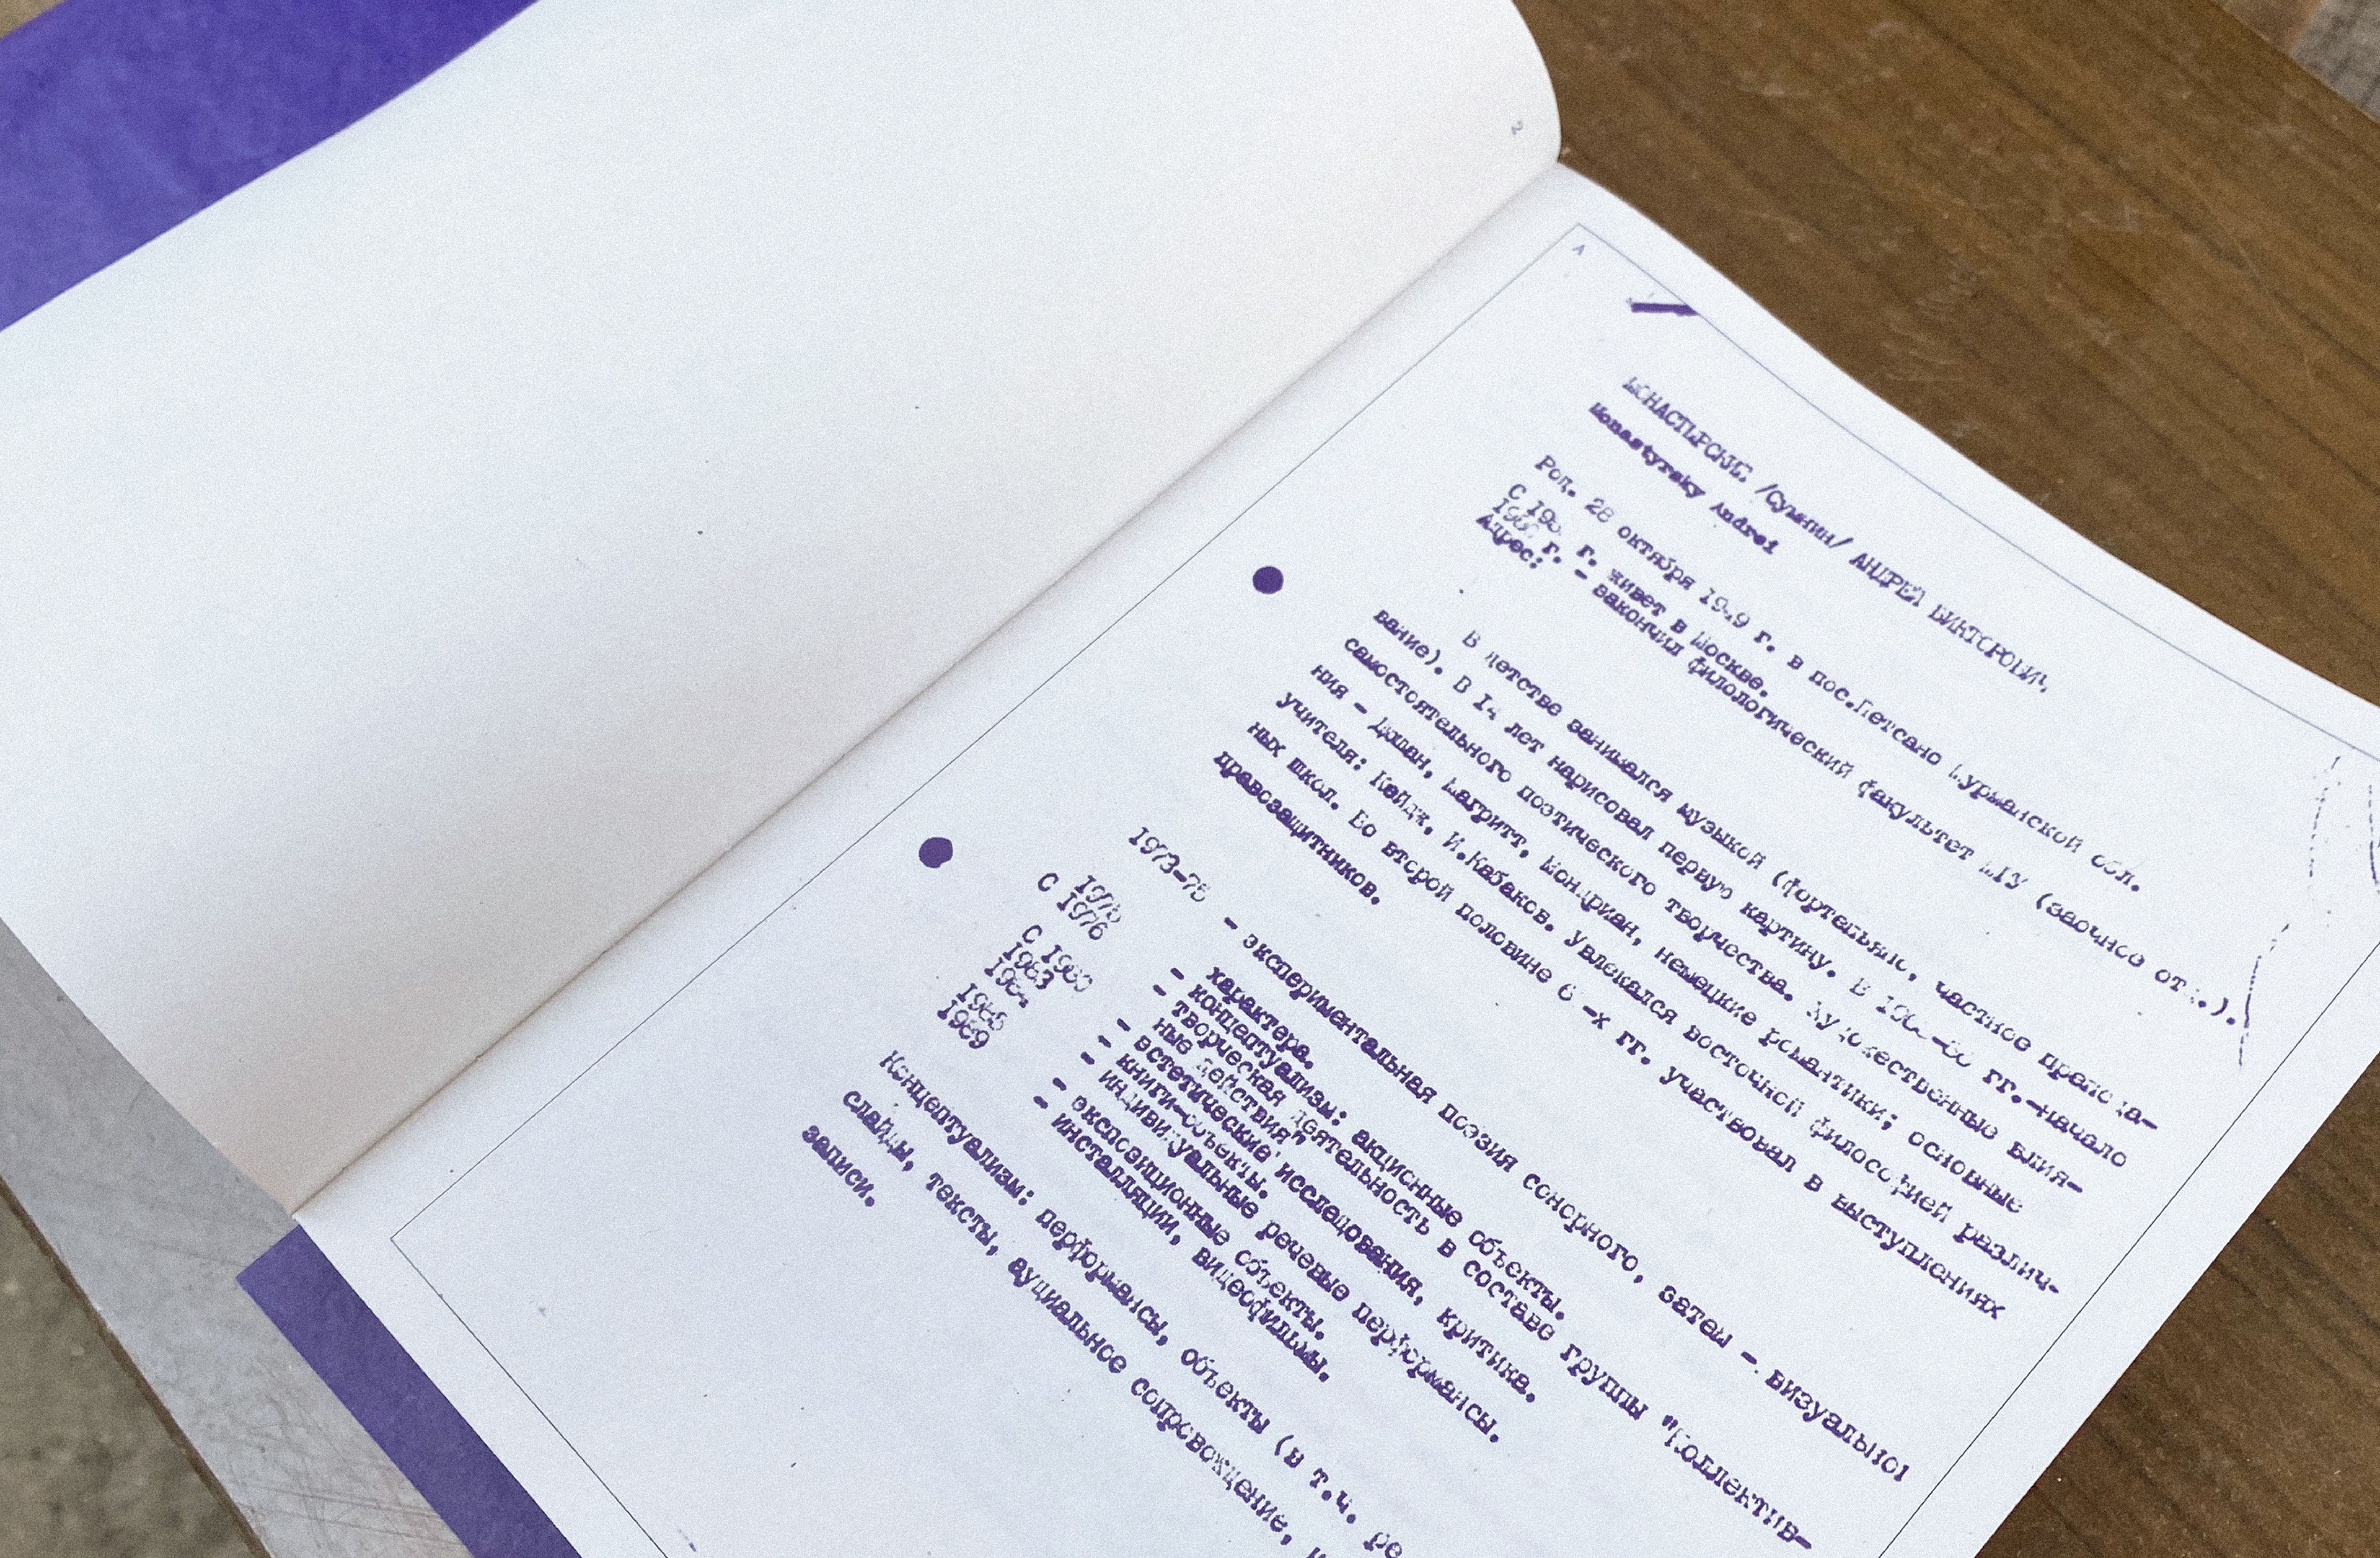 2
А
МОНАСТЫРСКИЙ /Сумнин/ АНДРЕЙ ВИКТОРОВИЧ
Monastyrsky Andrei
Род. 28 октября 1949 г. в пос.Петсамо Мурманской обл.
С г. живет в Москве.
г. - закончил филологический факультет МГУ (заочное от .).
Адрес:
В детстве занимался музыкой (фортепьяно, частное препода-
вание). В 14 лет нарисовал первую картину. В гг.-начало
самостоятельного поэтического творчества. Художественные влия-
ния - Дюшан, Магритт, Мондриан, немецкие романтики; основные
учителя: Кейдж, И.Кабаков. Увлекался восточной философией различ-
ных школ. Во второй половине 6 -х гг. участвовал в выступлениях
правозащитников.
1973-75 - экспериментальная поэзия сонорного, затем - визуальног
характера.
1975 - концептуализм: акционные объекты.
С 1976 - творческая деятельность в составе группы "Коллектив-
ные действия"
С 1980 - эстетические исследования, критика.
1983 - книги-объекты.
1984 - индивидуальные речевые перформансы.
1985 - экспозиционные объекты.
1989 - инсталляции, видеофильмы.
Концептуализм: перформансы, объекты (в т.ч. ре
слайды, тексты, аудиальное сопровождение,
записи.